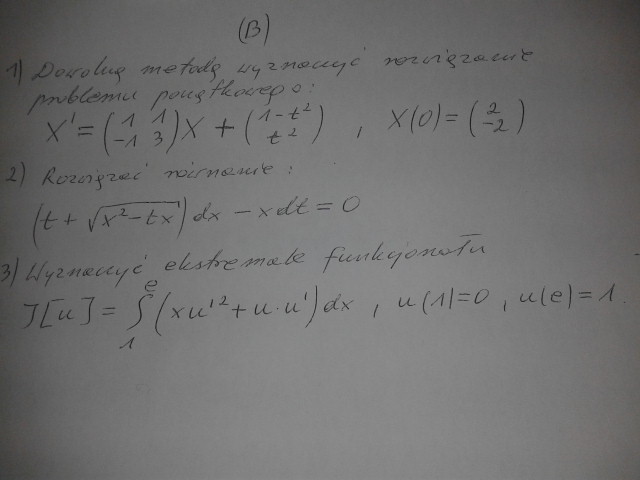 (B)
1) Dowolną metodą wyznaczyć rozwiązanie
problemu początkowego:
X' = (1 1 -1 3) X + (1-t² t²) , X(0) = (2 -2)
2) Rozwiązać równanie:
(t + √(x²-tx)) dx - x dt = 0
3) Wyznaczyć ekstremale funkcjonału
J[u] = ∫₁ᵉ (xu'² + u·u') dx , u(1)=0 , u(e)=1.